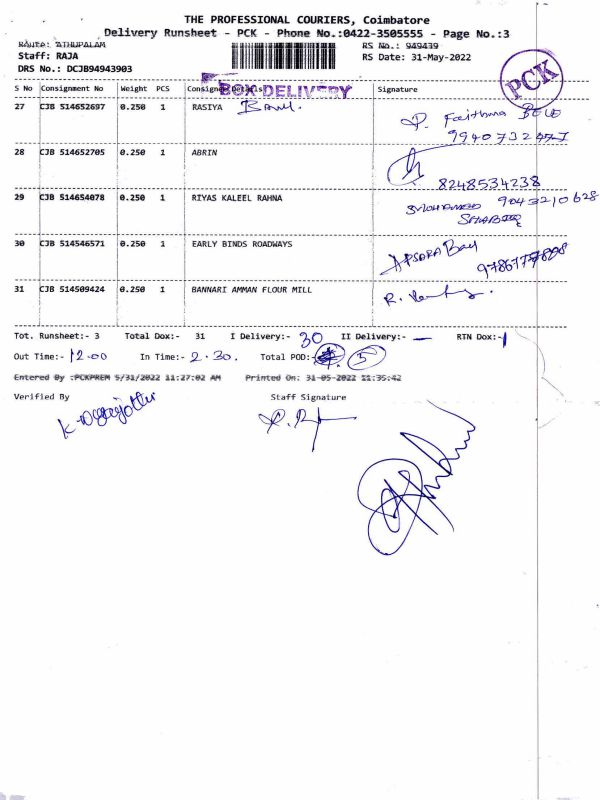 THE PROFESSIONAL COURIERS, Coimbatore
Delivery Runsheet - PCK - Phone No.:0422-3505555 - Page No.:3
Route: ATHUPALAM RS No.: 949439
Staff: RAJA RS Date: 31-May-2022
DRS No.: DCJB94943903
PCK
BOX DELIVERY
S No Consignment No Weight PCS Consignee Details Signature
27 CJB 514652697 0.250 1 RASIYA
P. Fathima
28 CJB 514652705 0.250 1 ABRIN
8248534238
29 CJB 514654078 0.250 1 RIYAS KALEEL RAHNA
MOHAMED 9043210628
30 CJB 514546571 0.250 1 EARLY BINDS ROADWAYS
APSARA
31 CJB 514509424 0.250 1 BANNARI AMMAN FLOUR MILL
R.
Tot. Runsheet:- 3 Total Dox:- 31 I Delivery:- 30 II Delivery:- — RTN Dox:- 1
Out Time:- 12.00 In Time:- 2.30. Total POD:- 5
Entered By :PCKPREM 5/31/2022 11:27:02 AM Printed On: 31-05-2022 11:35:42
Verified By Staff Signature